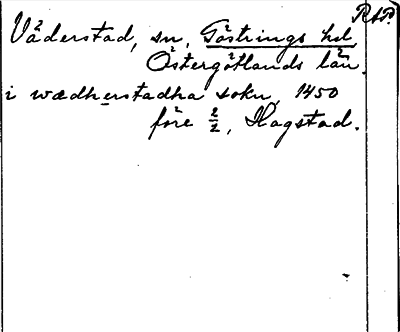 RAP.
Väderstad, sn, Göstrings hd
Östergötlands län.
i wædherstadha sokn, 1450
före 2/2, Hagstad.